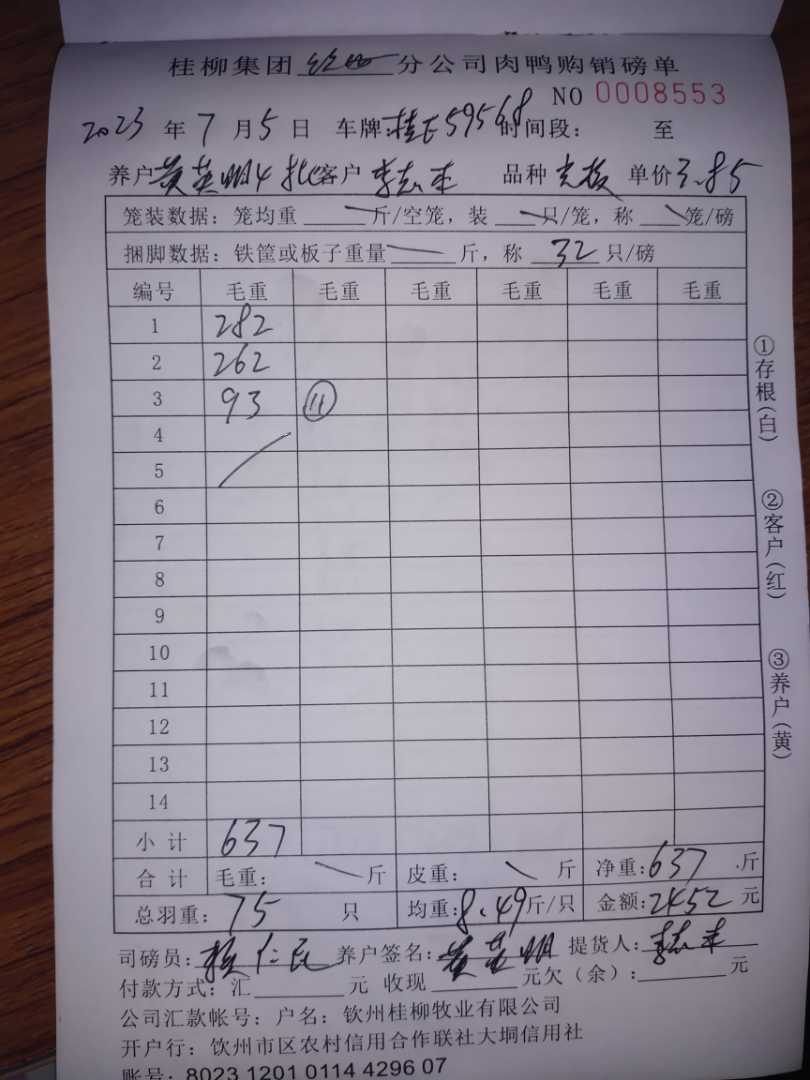 桂柳集团 分公司肉鸭购销磅单
NO 0008553
2023 年 7 月 5 日 车牌:桂E59568 时间段: 至
养户 黄英明4批 客户 李志 品种 单价 3.85
笼装数据: 笼均重 斤/空笼, 装 只/笼, 称 笼/磅
捆脚数据: 铁筐或板子重量 斤, 称 32 只/磅
编号 毛重 毛重 毛重 毛重 毛重 毛重
1 282
2 262
3 93 11
4
5
6
7
8
9
10
11
12
13
14
小计 637
合计 毛重: 斤 皮重: 斤 净重:637 斤
总羽重: 75 只 均重:8.49斤/只 金额:2452 元
司磅员: 养户签名:黄英明 提货人:李志
付款方式: 汇 元 收现 元欠(余): 元
公司汇款帐号: 户名: 钦州桂柳牧业有限公司
开户行: 钦州市区农村信用合作联社大垌信用社
账号: 8023 1201 0114 4296 07
①存根(白)
②客户(红)
③养户(黄)